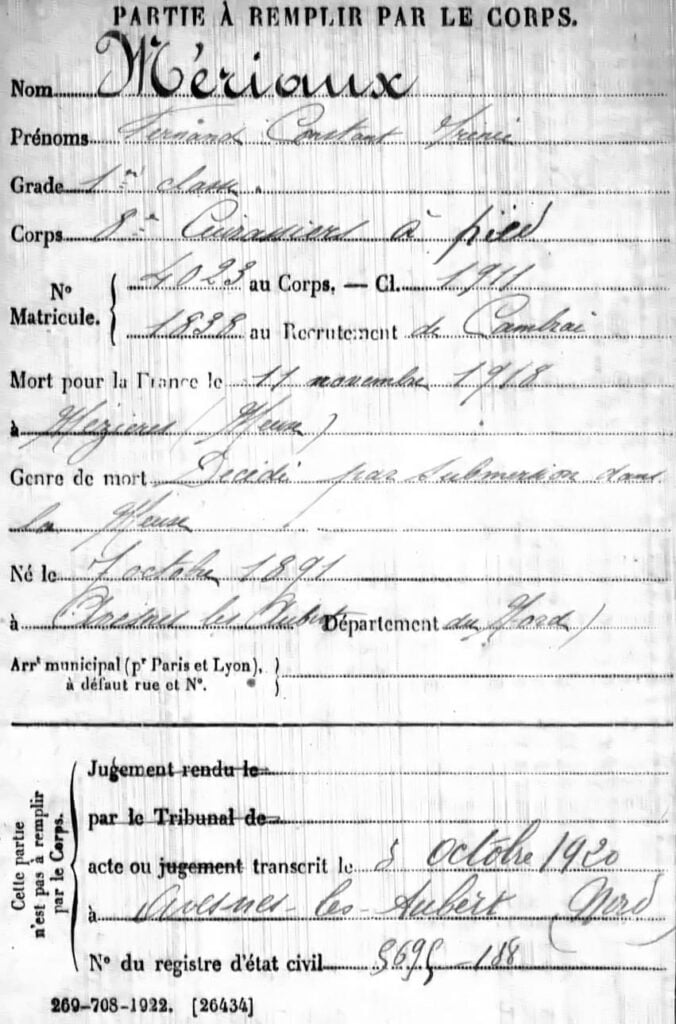 PARTIE À REMPLIR PAR LE CORPS.
Nom Mériaux
Prénoms Fernand Constant Irénée
Grade 1re classe.
Corps 8e Cuirassiers à pied
No Matricule. 4023 au Corps. — Cl. 1911
1838 au Recrutement de Cambrai
Mort pour la France le 11 novembre 1918
à Mézières (Meuse)
Genre de mort Décédé par submersion dans
la Meuse
Né le 7 octobre 1891
à Avesnes les Aubert Département du Nord)
Arrt municipal (pr Paris et Lyon),
à défaut rue et No.
Cette partie n'est pas à remplir par le Corps.
Jugement rendu le
par le Tribunal de
acte ou jugement transcrit le 5 octobre 1920
à Avesnes-les-Aubert (Nord)
No du registre d'état civil 5695-188
269-708-1922. [26434]